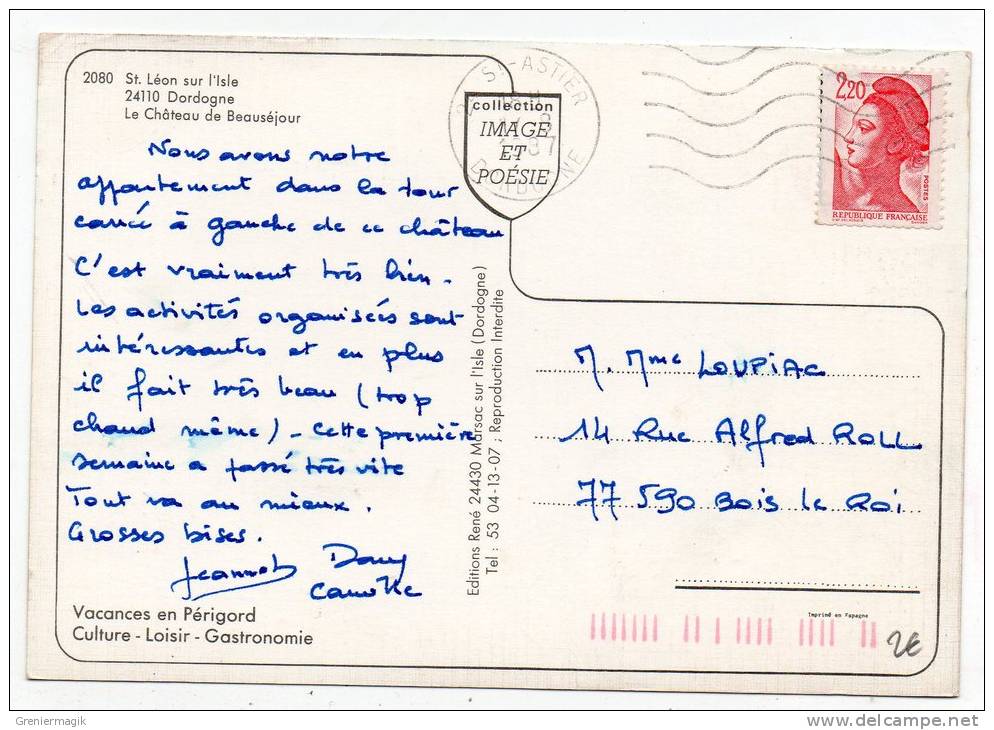 2080 St. Léon sur l'Isle
24110 Dordogne
Le Château de Beauséjour
Nous avons notre
appartement dans la tour
carrée à gauche de ce château
C'est vraiment très bien.
Les activités organisées sont
intéressantes et en plus
il fait très beau (trop
chaud même) - Cette première
semaine a passé très vite
Tout va au mieux.
Grosses bises.
Jeannot Dany
Camille
Vacances en Périgord
Culture - Loisir - Gastronomie
collection
IMAGE
ET
POÉSIE
ST-ASTIER
DORDOGNE
Editions René 24430 Marsac sur l'Isle (Dordogne)
Tel : 53 04-13-07 ; Reproduction Interdite
2,20
POSTES
REPUBLIQUE FRANÇAISE
M. Mme LOUPIAC
14 Rue Alfred ROLL
77 590 Bois le Roi
Imprimé en Espagne
2€
Greniermagik
www.delcampe.net